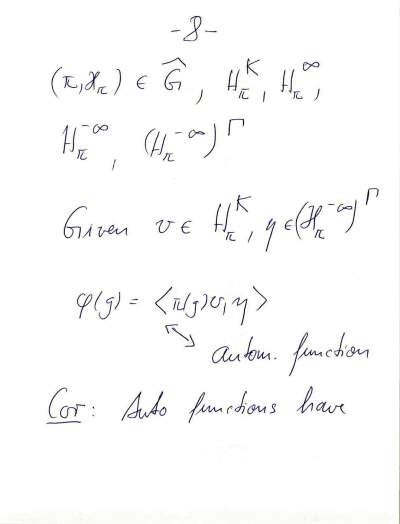 -8-
(π, ℋ_π) ∈ Ĝ, H_π^K, H_π^∞,
H_π^{-∞}, (H_π^{-∞})^Γ
Given v ∈ H_π^K, η ∈ (ℋ_π^{-∞})^Γ
φ(g) = ⟨π(g)v, η⟩
autom. function
Cor: Auto functions have